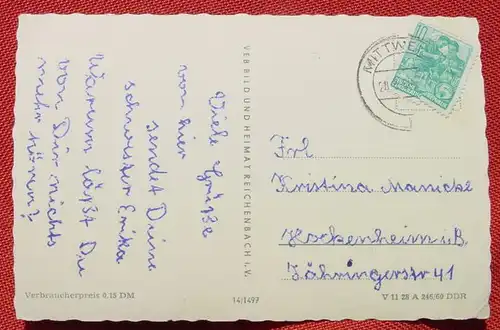 Viele Grüße
von hier
sendet Deine
Schwester Erika
Warum läßt Du
von Dir nichts
mehr hören?
VEB BILD UND HEIMAT REICHENBACH i. V.
MITTWEI
10
Frl
Kristina Manicke
Hockenheim i.B.
Zähringerstr 41
Verbraucherpreis 0,15 DM
14/1497
V 11 28 A 246/60 DDR